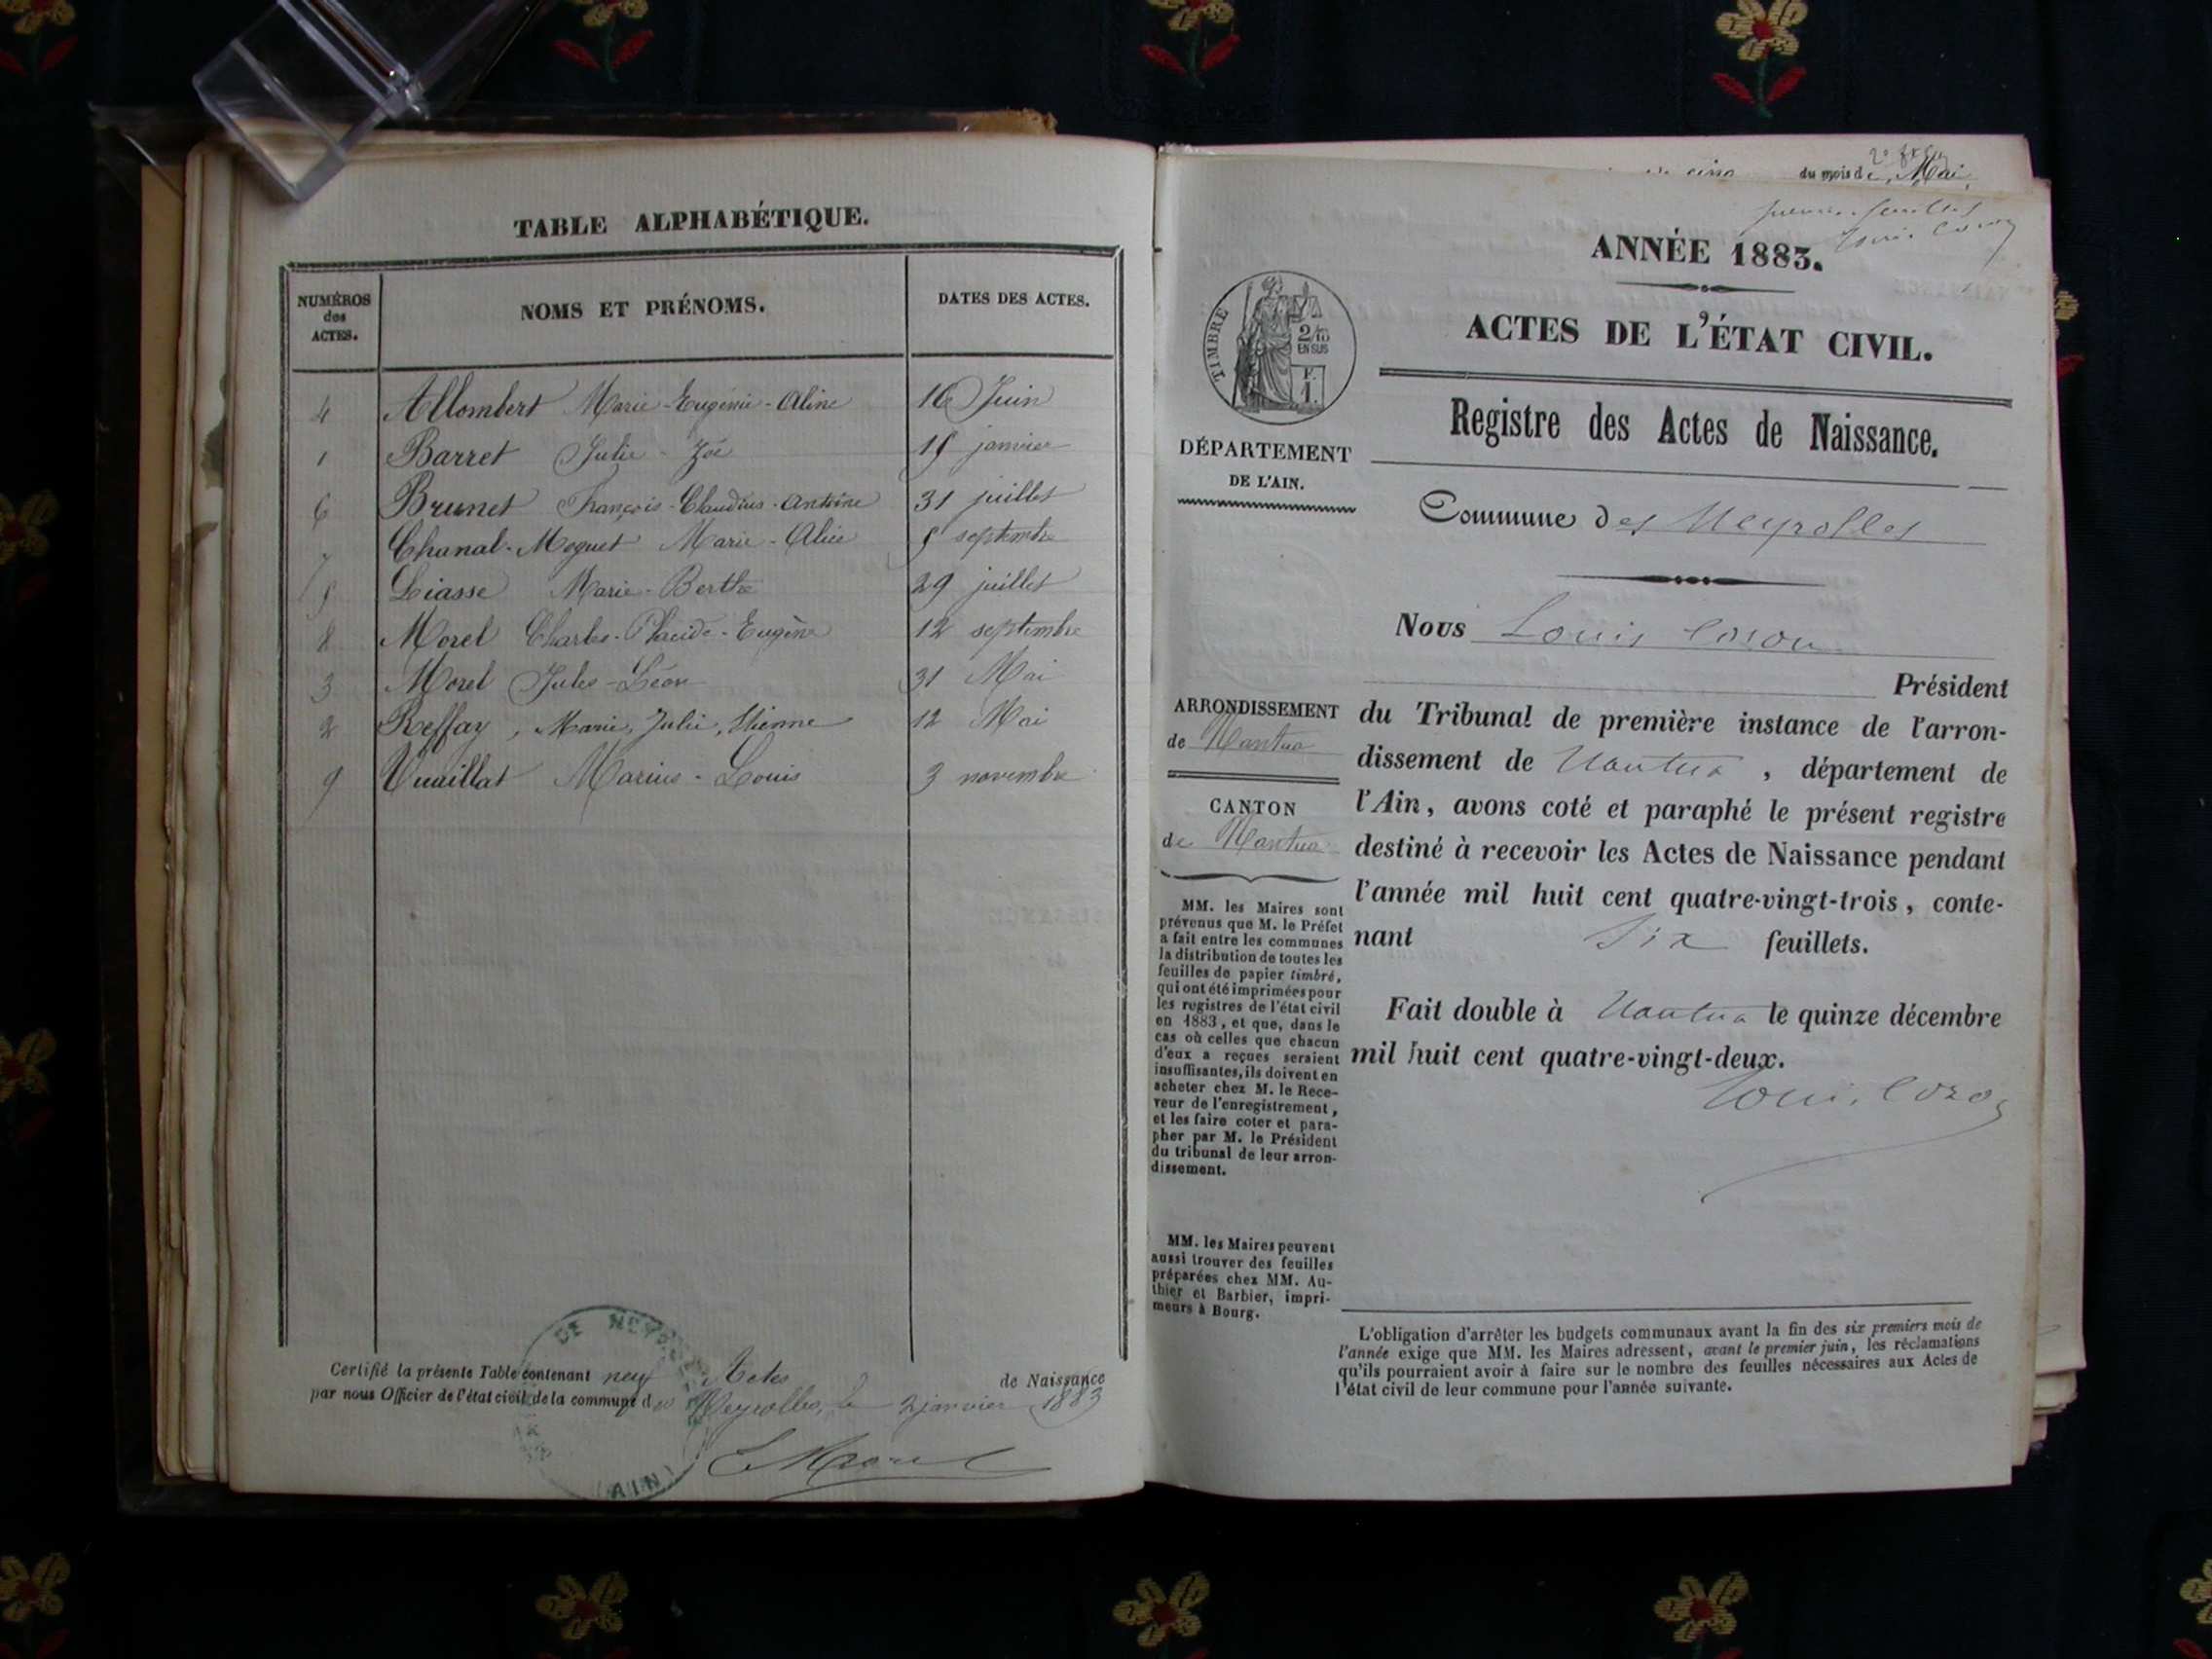 TABLE ALPHABÉTIQUE.
NUMÉROS des ACTES.
NOMS ET PRÉNOMS.
DATES DES ACTES.
4 Allombert Marie-Eugénie-Aline 16 Juin
1 Barret Julie-Zoé janvier
6 Brunet François-Claudius-Antoine 31 juillet
7 Chanal-Moguet Marie-Alice septembre
5 Liasse Marie-Berthe 29 juillet
8 Morel Charles-Placide-Eugène 12 septembre
3 Morel Jules-Léon 31 Mai
2 Reffay, Marie, Julie, Etienne 12 Mai
9 Vuaillat Marius-Louis 3 novembre
Certifié la présente Table contenant neuf Actes de Naissance
par nous Officier de l'état civil de la commune des Neyrolles, le 2 janvier 1883
Morel
AIN
du mois de Mai
premier feuillet
Louis Coron
ANNÉE 1883.
ACTES DE L'ÉTAT CIVIL.
TIMBRE
2/10
EN SUS
F.
1.
DÉPARTEMENT
DE L'AIN.
Registre des Actes de Naissance.
Commune des Neyrolles
Nous Louis Coron
Président
ARRONDISSEMENT
de Nantua
CANTON
de Nantua
du Tribunal de première instance de l'arron-
dissement de Nantua, département de
l'Ain, avons coté et paraphé le présent registre
destiné à recevoir les Actes de Naissance pendant
l'année mil huit cent quatre-vingt-trois, conte-
nant Six feuillets.
Fait double à Nantua le quinze décembre
mil huit cent quatre-vingt-deux.
Louis Coron
MM. les Maires sont
prévenus que M. le Préfet
a fait entre les communes
la distribution de toutes les
feuilles de papier timbré,
qui ont été imprimées pour
les registres de l'état civil
en 1883, et que, dans le
cas où celles que chacun
d'eux a reçues seraient
insuffisantes, ils doivent en
acheter chez M. le Rece-
veur de l'enregistrement,
et les faire coter et para-
pher par M. le Président
du tribunal de leur arron-
dissement.
MM. les Maires peuvent
aussi trouver des feuilles
préparées chez MM. Au-
thier et Barbier, impri-
meurs à Bourg.
L'obligation d'arrêter les budgets communaux avant la fin des six premiers mois de
l'année exige que MM. les Maires adressent, avant le premier juin, les réclamations
qu'ils pourraient avoir à faire sur le nombre des feuilles nécessaires aux Actes de
l'état civil de leur commune pour l'année suivante.